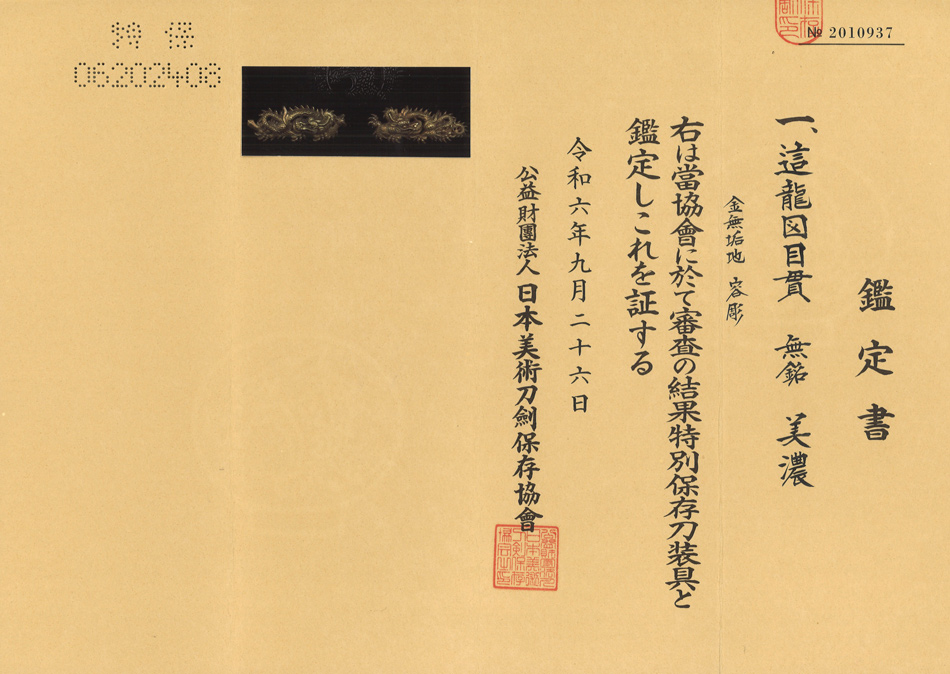 № 2010937
鑑定書
一、這龍図目貫　無銘　美濃
金無垢地　容彫
右は當協會に於て審査の結果特別保存刀装具と
鑑定しこれを証する
令和六年九月二十六日
公益財團法人 日本美術刀劍保存協會
特保
06202408